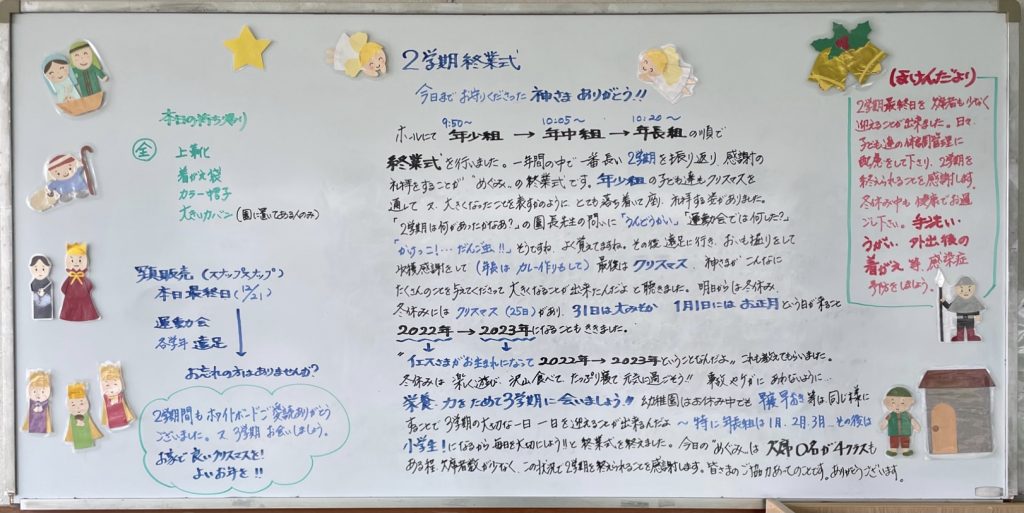 2学期 終業式
今日まで お守りくださった 神さま ありがとう!!
9:50〜 10:05〜 10:20〜
ホールにて 年少組 → 年中組 → 年長組 の順で
終業式 を行いました。一年間の中で 一番長い 2学期を振り返り、感謝の
礼拝をすることが "めぐみ"の 終業式です。年少組の子ども達もクリスマスを
通して 又、大きくなったことを表すかのように とても落ち着いて座り、礼拝する姿がありました。
「2学期は何があったかなあ?」の園長先生の問いに「うんどうかい」「運動会では何した?」
「かけっこ!…だんご虫!!」そうですね、よく覚えてますね。その後 遠足に行き、おいも掘りをして
収穫感謝をして(年長は カレー作りもして) 最後は クリスマス、神さまが こんなに
たくさんのことを与えてくださって 大きくなることが出来たんだよ と聴きました。明日からは冬休み、
冬休みには クリスマス(25日)があり、31日は大みそか 1月1日には お正月 という日が来ること
2022年 → 2023年になることもききました。
"イエスさまがお生まれになって 2022年 → 2023年ということなんだよ" これも教えてもらいました。
冬休みは 楽しく遊び、沢山食べて、たっぷり寝て 元気に過ごそう!! 事故やけがに あわないように…
栄養、力をためて3学期に会いましょう!! 幼稚園はお休み中でも 早寝早おき 等は同じ様に
することで 3学期の大切な一日一日を迎えることが出来るんだよ 〜 特に 年長は 1月、2月、3月…その後は
小学生!になるから 毎日を大切にしよう!! と 終業式を終えました。今日の"めぐみ"は 欠席0名が4クラスも
ある程、欠席者数が少なく、この状況で2学期を終えられることを感謝します。皆さまのご協力あってのことです。ありがとうございます。
本日の持ち帰り
全
上靴
着がえ袋
カラー帽子
大きいカバン(園に置いてある人のみ)
写真販売(スナップスナップ)
本日最終日(12/21)
運動会
各学年 遠足
お忘れの方はありませんか?
2学期間も ホワイトボードご愛読ありがとう
ございました。又、3学期 お会いしましょう。
お家で良いクリスマスを!
よいお年を!!
(ほけんだより)
2学期最終日を 欠席者も少なく
迎えることが出来ました。日々、
子ども達の体調管理に
配慮をして下さり、2学期を
終えられることを感謝します。
冬休み中も 健康でお過
ごし下さい。手洗い
うがい、外出後の
着がえ 等 感染症
予防をしましょう。